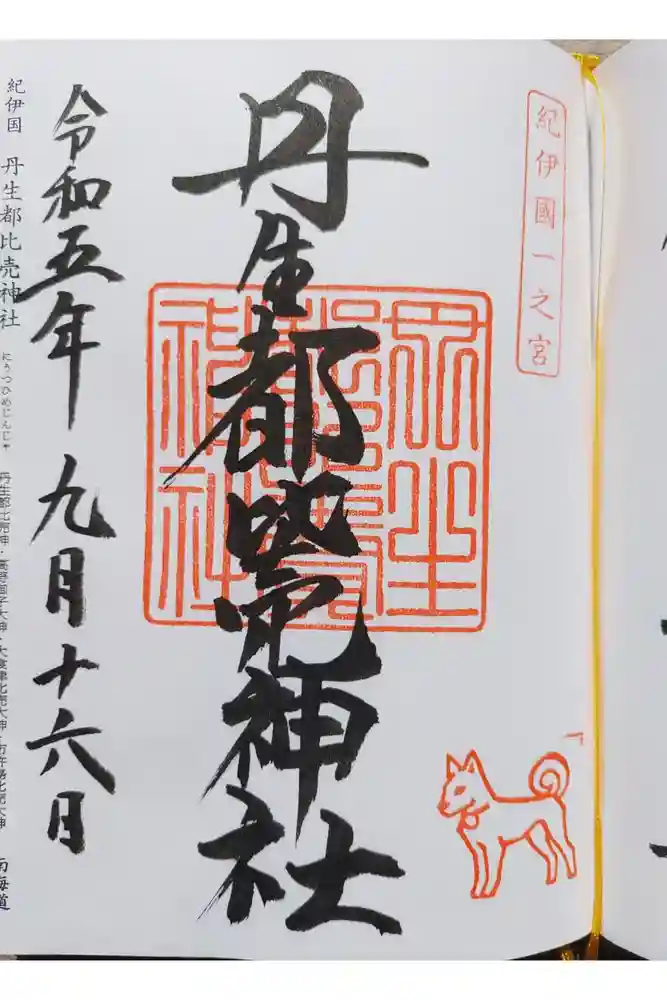 紀伊國一之宮
丹生都比売神社
丹生都比売神社
令和五年九月十六日
紀伊国 丹生都比売神社 にうつひめじんじゃ 丹生都比売神・高野御子大神・大食津比売大神・市杵島比売大神 南海道